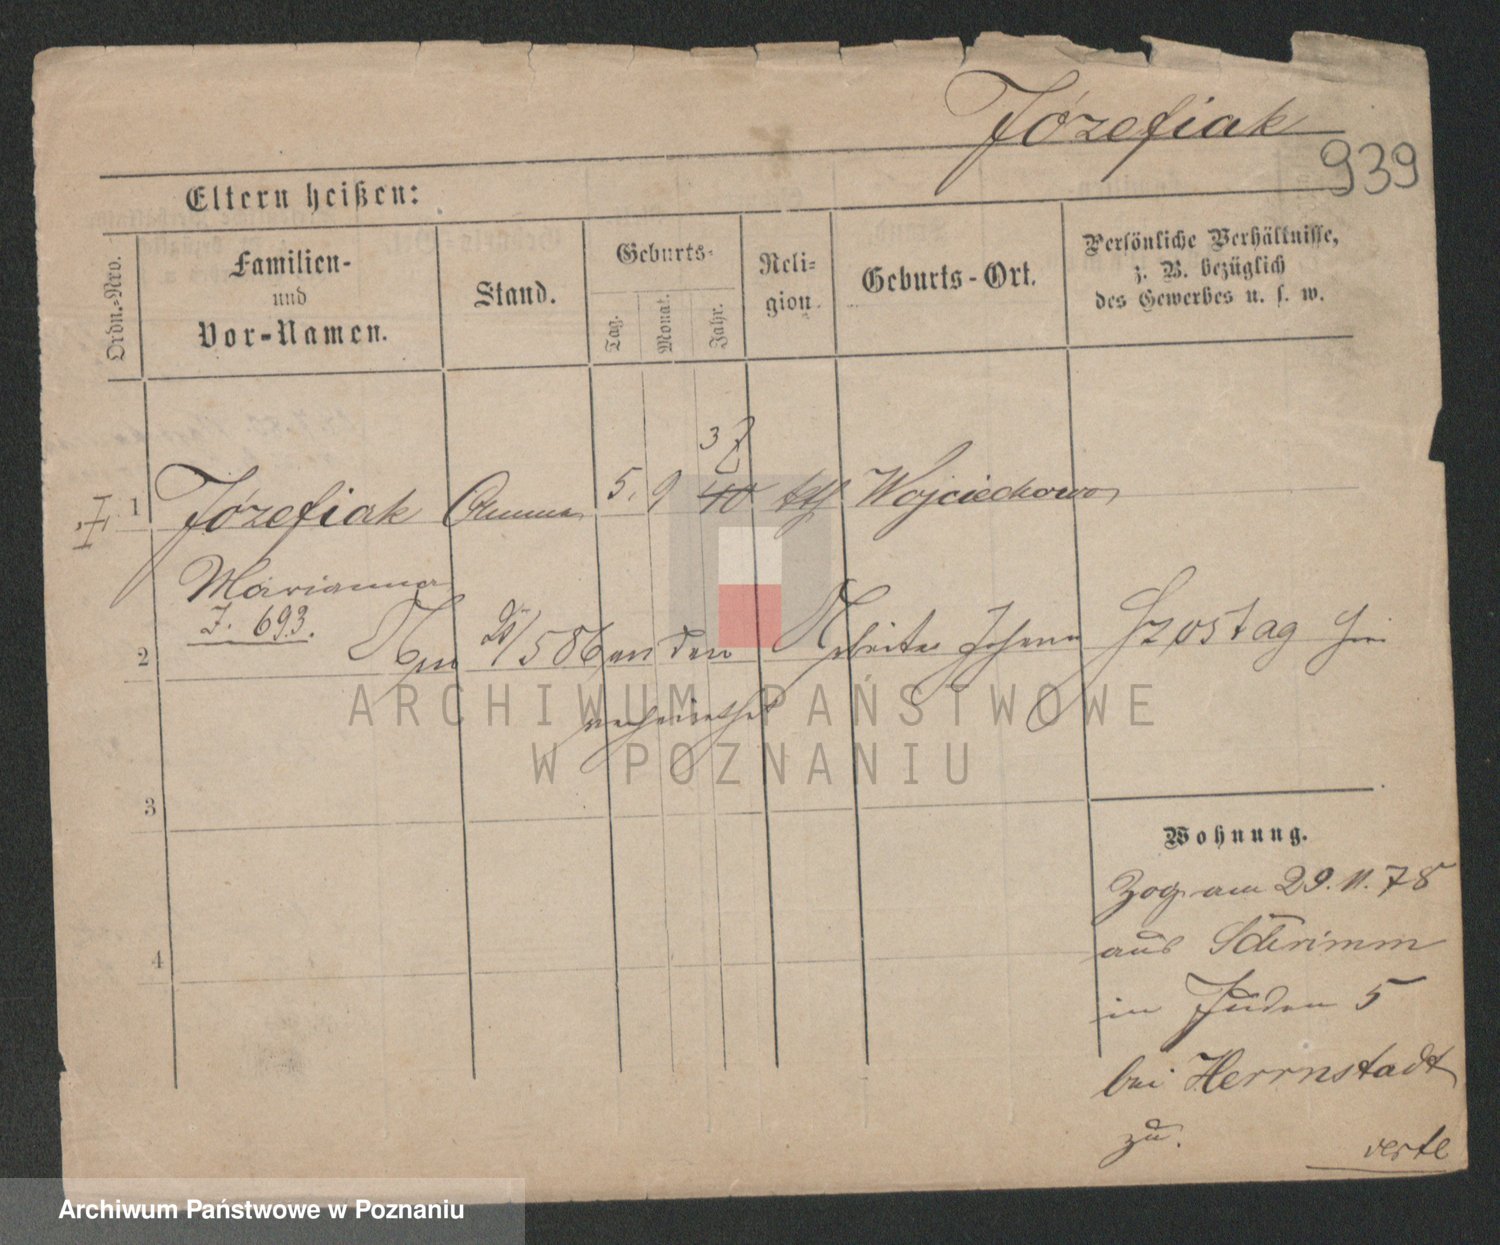 Józefiak
939
Eltern heißen:
Ordn.-Nro.
Familien-
und
Vor-Namen.
Stand.
Geburts-
Tag.
Monat.
Jahr.
Reli-
gion.
Geburts-Ort.
Persönliche Verhältnisse,
z. B. bezüglich
des Gewerbes u. s. w.
3
1 Józefiak 5. 9 40 kth Wojciechowo
Marianna
J. 693.
2
586 an den Arbeiter Johann Szostag hier
verheirathet
3
Wohnung.
Zog am 29. 11. 78
aus Schrimm
in Juden 5
bei Herrnstadt
zu.
4
verte
ARCHIWUM PAŃSTWOWE
W POZNANIU
Archiwum Państwowe w Poznaniu